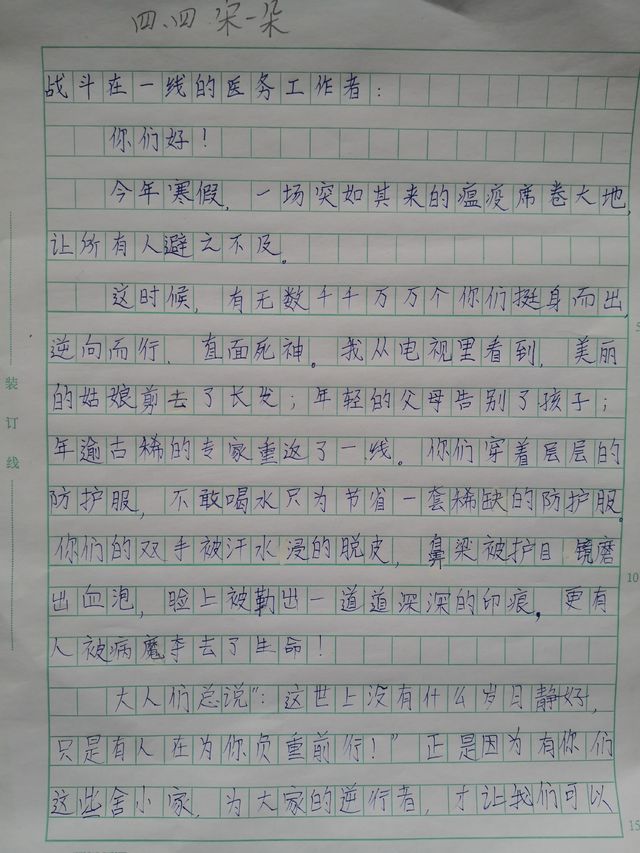 四.四 宋一朵
战斗在一线的医务工作者：
你们好！
今年寒假，一场突如其来的瘟疫席卷大地，
让所有人避之不及。
这时候，有无数千千万万个你们挺身而出，
5
逆向而行、直面死神。我从电视里看到，美丽
的姑娘剪去了长发；年轻的父母告别了孩子；
年逾古稀的专家重返了一线。你们穿着层层的
防护服，不敢喝水只为节省一套稀缺的防护服。
你们的双手被汗水浸的脱皮，鼻梁被护目镜磨
10
出血泡，脸上被勒出一道道深深的印痕。更有
人被病魔夺去了生命！
大人们总说“：这世上没有什么岁月静好，
只是有人在为你负重前行！”正是因为有你们
这些舍小家，为大家的逆行者，才让我们可以
15
装订线